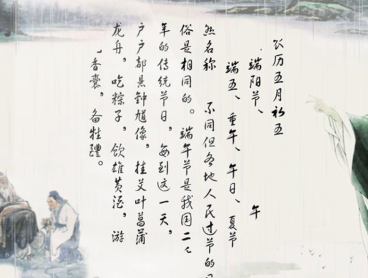 农历五月初五
、端阳节、 午
端五、重午、午日、夏节
然名称 不同但各地人民过节的
俗是相同的。端午节是我国二
年的传统节日，每到这一天，
户户都悬钟馗像，挂艾叶菖蒲
龙舟，吃粽子，饮雄黄酒，游
香囊，备牲醴。